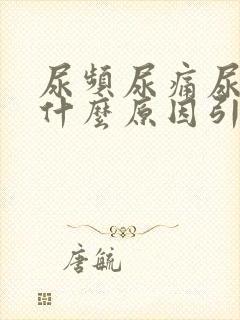 尿頻尿痛尿
什麼原因引
唐毓